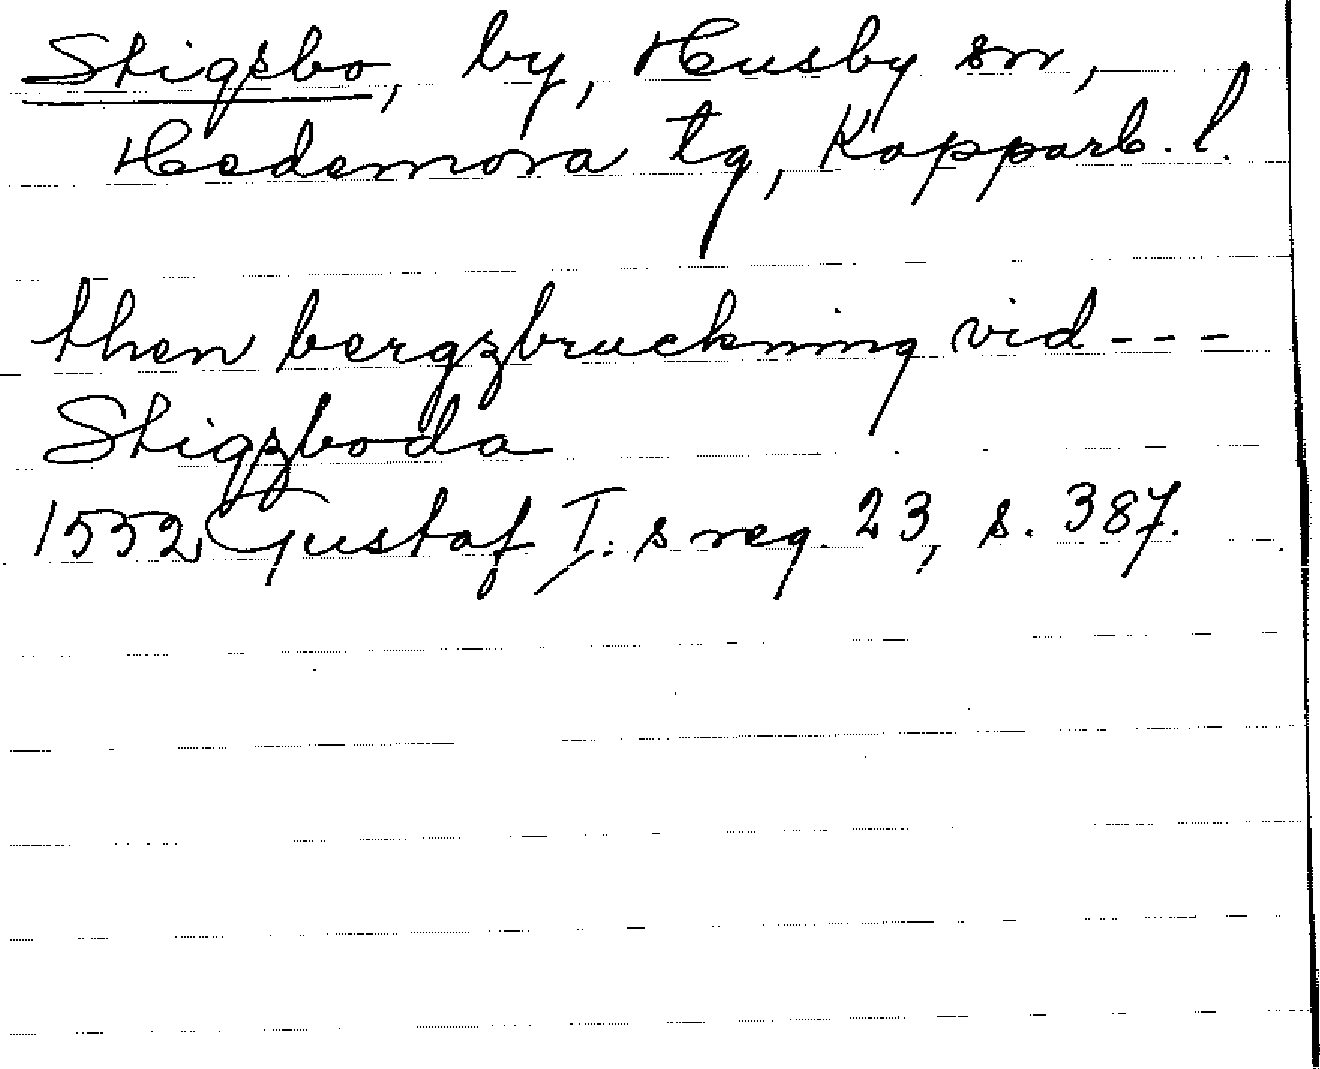 Stigsbo, by, Husby sn,
Hedemora tg, Kopparb. l.
then bergzbruckning vid - - -
Stigzboda
1552 Gustaf I:s reg. 23, s. 387.